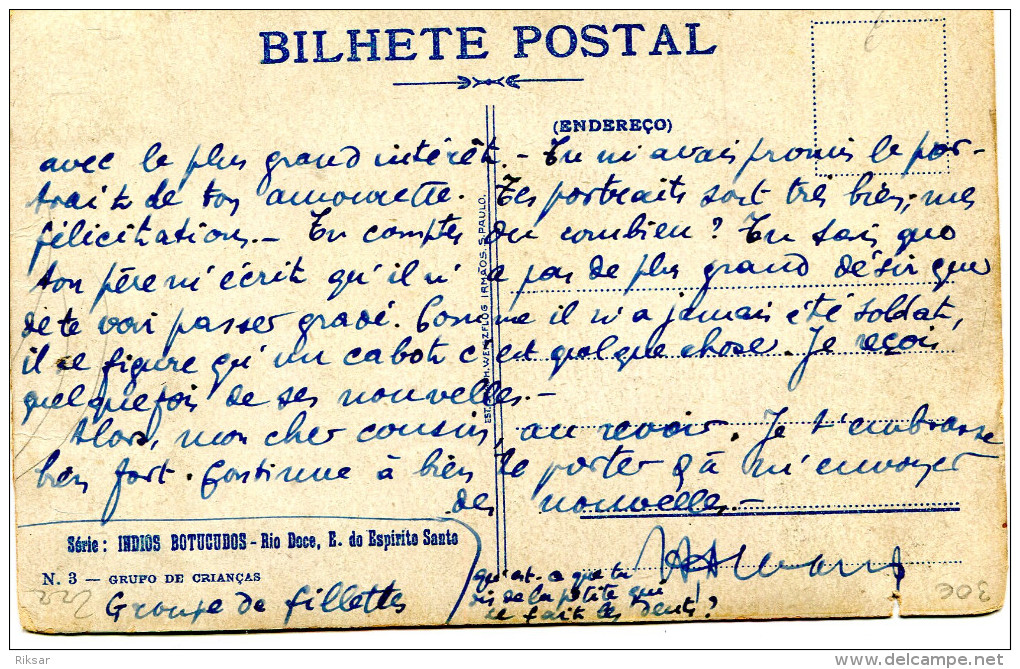 BILHETE POSTAL
(ENDEREÇO)
avec le plus grand intérêt. - Tu m'avais promis le por-
trait de ton amourette. Tes portraits sont très bien; mes
félicitations. - Tu comptes du combien? Tu sais que
ton père m'écrit qu'il n'a pas de plus grand désir que
de te voir passer gradé. Comme il n'a jamais été soldat,
il se figure qu'un cabot c'est quelque chose. Je reçois
quelquefois de ses nouvelles. -
Alors, mon cher cousin, au revoir. Je t'embrasse
bien fort. Continue à bien te porter & à m'envoyer
des nouvelles. -
EST. GRAPH. WEISZFLOG IRMÃOS. S. PAULO.
Série: INDIOS BOTUCUDOS - Rio Doce, E. do Espirito Santo
N. 3 — GRUPO DE CRIANÇAS
Groupe de fillettes
qu'est-ce que tu
dis de la petite qui
se fait les dents!?
30€
Riksar
www.delcampe.net